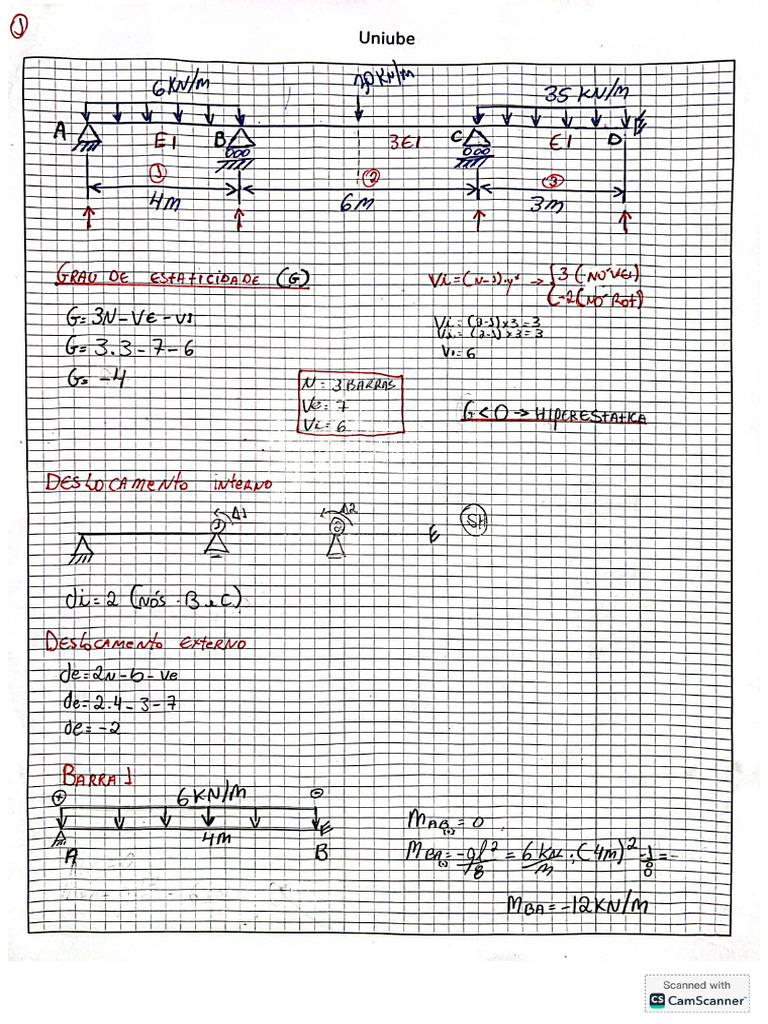 1
Uniube
6 KN/m
20 KN/m
35 KN/m
A EI B 3EI C EI D
1 2 3
4m 6m 3m
GRAU DE ESTATICIDADE (G)
G= 3N - VE - VI
G= 3.3 - 7 - 6
G= -4
Vi = (2-1) x 3 = 3
Vi = (2-1) x 3 = 3
Vi = 6
N = 3 BARRAS
Ve = 7
Vi = 6
G < 0 → HIPERESTATICA
DESLOCAMENTO INTERNO
Δ1 Δ2
SH
di = 2 (NÓS - B e C)
DESLOCAMENTO EXTERNO
de = 2N - b - Ve
de = 2.4 - 3 - 7
de = -2
BARRA 1
+ 6 KN/m -
4m
A B
MAB = 0
(+)
MBA = -ql²/8 = 6 KN/m . (4m)²
MBA = -12 KN/m
Scanned with
CS CamScanner